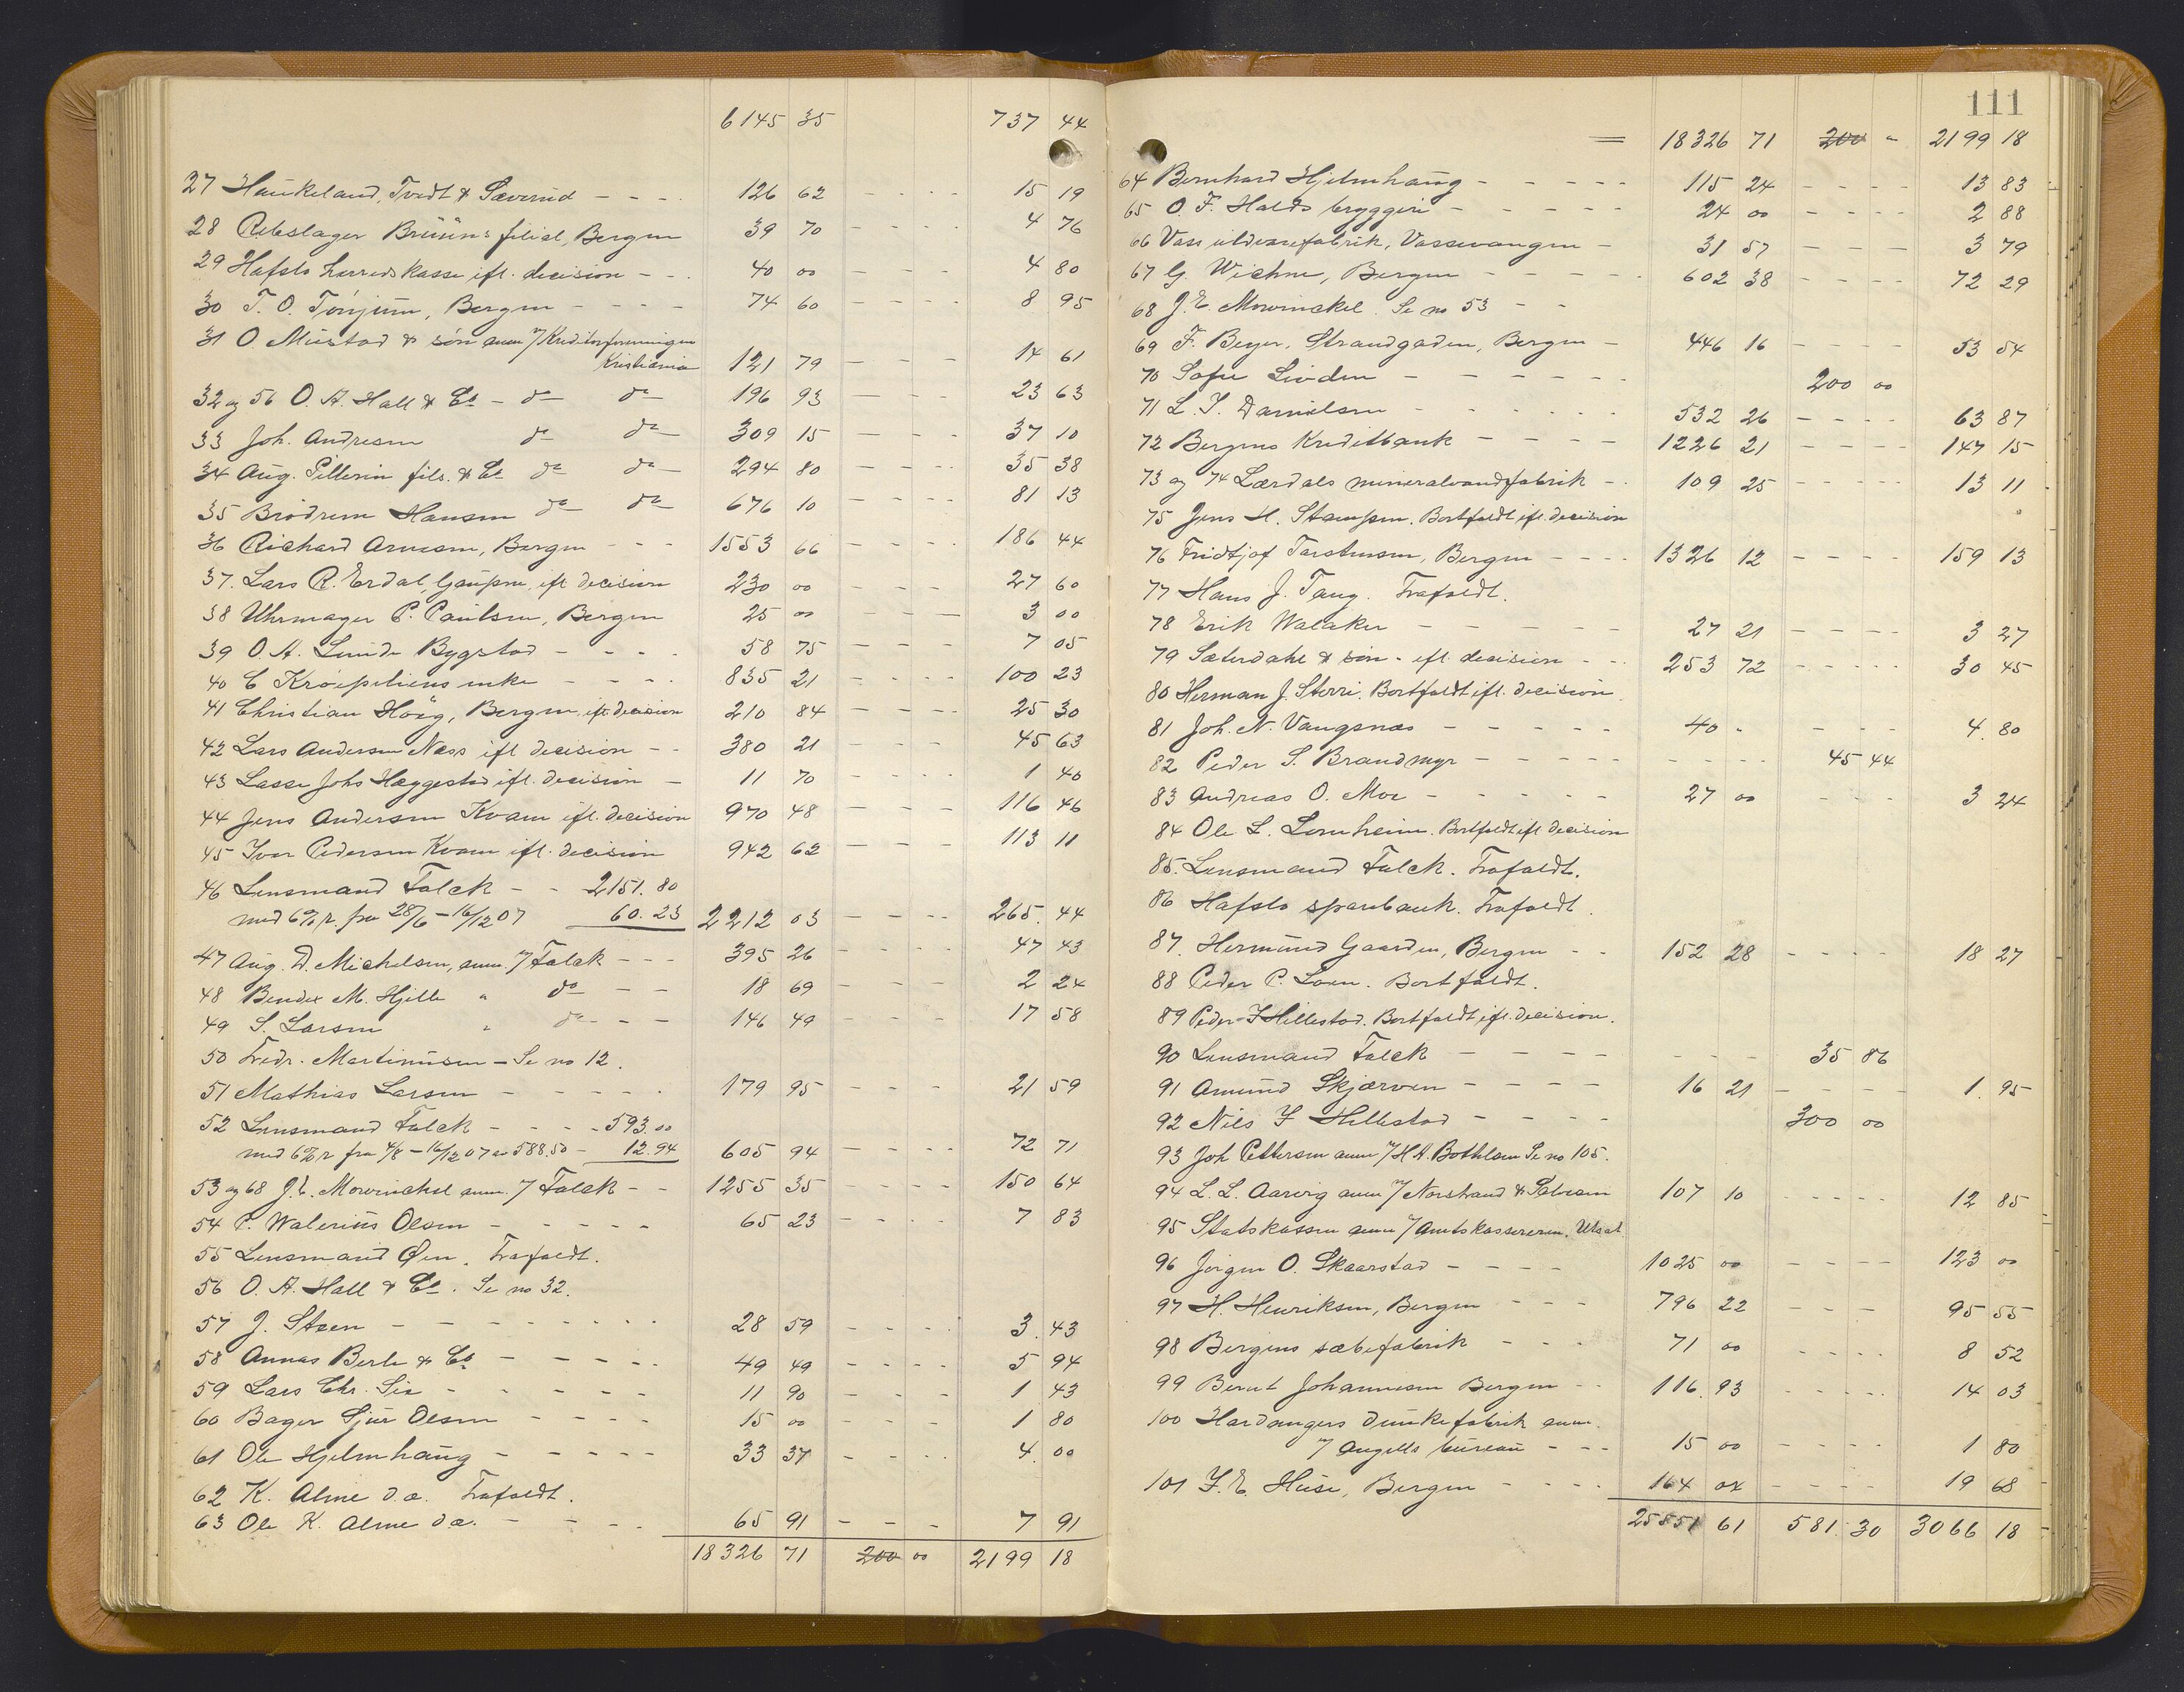 6145 35 737 44
27 Haukeland, Tvedt & Sæverud - - - 126 62 - - - - 15 19
28 Rebslager Brüüns filial, Bergen 39 70 - - - - 4 76
29 Hafslo herredskasse ifl. decision - - . 40 00 - - - 4 80
30 T. O. Tønjum, Bergen - - - - 74 60 - - - - 8 95
31 O. Mustad & søn anm. v/ Kreditorforeningen
Kristiania 121 79 - - - 14 61
32 og 56 O. A. Hall & Co - do do 196 93 - - - 23 63
33 Joh. Andresen do do 309 15 - - - 37 10
34 Aug. Pellerin fils. & Co do do 294 80 - - - 35 38
35 Brødrene Hansen do do 676 10 - - - - 81 13
36 Richard Arnesen, Bergen - - 1553 66 - - - - 186 44
37. Lars R. Erdal, Gaupne, ifl decision 230 00 - - - 27 60
38 Uhrmager P. Paulsen, Bergen 25 00 - - - 3 00
39 O. A. Lunde Bygstad - - - . 58 75 - - - 7 05
40 C Krøepeliens enke - - - . 835 21 - - - - 100 23
41 Christian Höög, Bergen, ifl. decision 210 84 - - - - 25 30
42 Lars Andersen Næss ifl decision - - 380 21 - - - 45 63
43 Lasse Johs Hæggestad ifl. decision - 11 70 - - - - 1 40
44 Jens Andersen Kvam ifl. decision 970 48 - - - 116 46
45 Iver Pedersen Kvam ifl. decision 942 62 - - - 113 11
46 Lensmand Falck - - 2151. 80
med 6% r. fra 28/6 - 16/12 07 60. 23 2212 03 - - - 265. 44
47 Aug. D. Michelsen, anm. v/ Falck - - - 395 26 - - - - 47 43
48 Bendix M. Hjelle " do - - 18 69 - - - 2 24
49 S. Larsen " do - - - 146 49 - - - 17 58
50 Fredr. Martinussen - Se no 12.
51 Mathias Larsen - - - - . 179 95 - - - 21 59
52 Lensmand Falck - - - - 593. 00
med 6% r. fra 4/8 - 16/12 07 av 588.50 - 12. 94 605 94 - - - - 72 71
53 og 68 J. E. Mowinckel anm. v/ Falck - - 1255 35 - - - - 150 64
54 P. Walerius Olsen - - - - - 65 23 - - - - 7 83
55 Lensmand Øen. Frafaldt.
56 O. A. Hall & Co. Se no 32.
57 J. Steen - - - - - - - . 28 59 - - - . 3. 43
58 Annas Berle & Co - - - - . 49 49 - - - - 5 94
59 Lars Chr. Sie - - - - - 11 90 - - - 1 43
60 Bager Sjur Olsen - - - - 15 00 - - - 1 80
61 Ole Hjelmhaug - - - - - 33 37 - - - . 4. 00
62 K. Alme d.æ. Frafaldt.
63 Ole K. Alme d.æ. - - - . 65 91 - - - 7 91
18326 71 200 00 2199 18
111
= 18326 71 200 " 2199 18
64 Bernhard Hjelmhaug - - - - - 115 24 - - - - 13 83
65 O. F. Halds bryggeri - - - - - 24 00 - - - - 2 88
66 Voss uldvarefabrik, Vossevangen - 31 57 - - - 3 79
67 G. Wichne, Bergen - - - - 602 38 - - - - 72 29
68 J. E. Mowinckel. Se no 53 - -
69 F. Beyer, Strandgaden, Bergen - 446 16 - - - - 53 54
70 Sofie Linden - - - - - - 200 00
71 L. J. Danielsen - - - - - - 532 26 - - - - 63 87
72 Bergens Kreditbank - - - - 1226 21 - - - - 147 15
73 og 74 Lærdals mineralvandfabrik - . 109 25 - - - - - 13 11
75 Jens H. Stensen. Bortfaldt ifl. decision
76 Fridtjof Torstensen, Bergen - - - - 1326 12 - - - - 159 13
77 Hans J. Tang. Frafaldt.
78 Erik Walaker - - - - - 27 21 - - - - 3 27
79 Sæterdahl & søn - ifl. decision - - . 253 72 - - - - - 30 45
80 Herman J. Sterri. Bortfaldt ifl. decision
81 Joh. N. Vangsnæs - - - - - 40 - - - - 4. 80
82 Peder S. Brandmyr - - - - - - - - - 45 44
83 Andreas O. Moe - - - - - 27 00 - - - 3 24
84 Ole L. Lomheim. Bortfaldt ifl decision
85. Lensmand Falck. Frafaldt.
86 Hafslo sparebank. Frafaldt.
87. Hermund Gaarden, Bergen - - 152 28 - - - - 18 27
88 Peder P. Loen. Bortfaldt.
89 Peder J Hillestad. Bortfaldt ifl. decision.
90 Lensmand Falck - - - - - - - 35 86
91 Amund Skjærven - - - - 16 21 - - - - 1. 95
92 Nils J Hillestad - - - - 300 00
93 Joh Pettersen anm v/ H. A. Bothlsen Se no 105.
94 L. L. Aarvig anm v/ Norstrand & 107 10 - - - - - 12 85
95 Statskassen anm v/ Amtskassereren. Utsat
96 Jørgen O. Skaarstad - - - - 1025 00 - - - - 123 00
97 H. Henriksen, Bergen - - - 796 22 - - - 95 55
98 Bergens sæbefabrik - - - . 71 00 - - - - 8 52
99 Bernt Johannesen Bergen - . 116. 93 - - - - - 14 03
100 Hardangers dunkefabrik anm.
v/ Angells bureau - - - 15 00 - - - - 1 80
101 J. E. Huse, Bergen - - - - 164 04 - - - - 19 68
25551 61 581. 30 3066 18